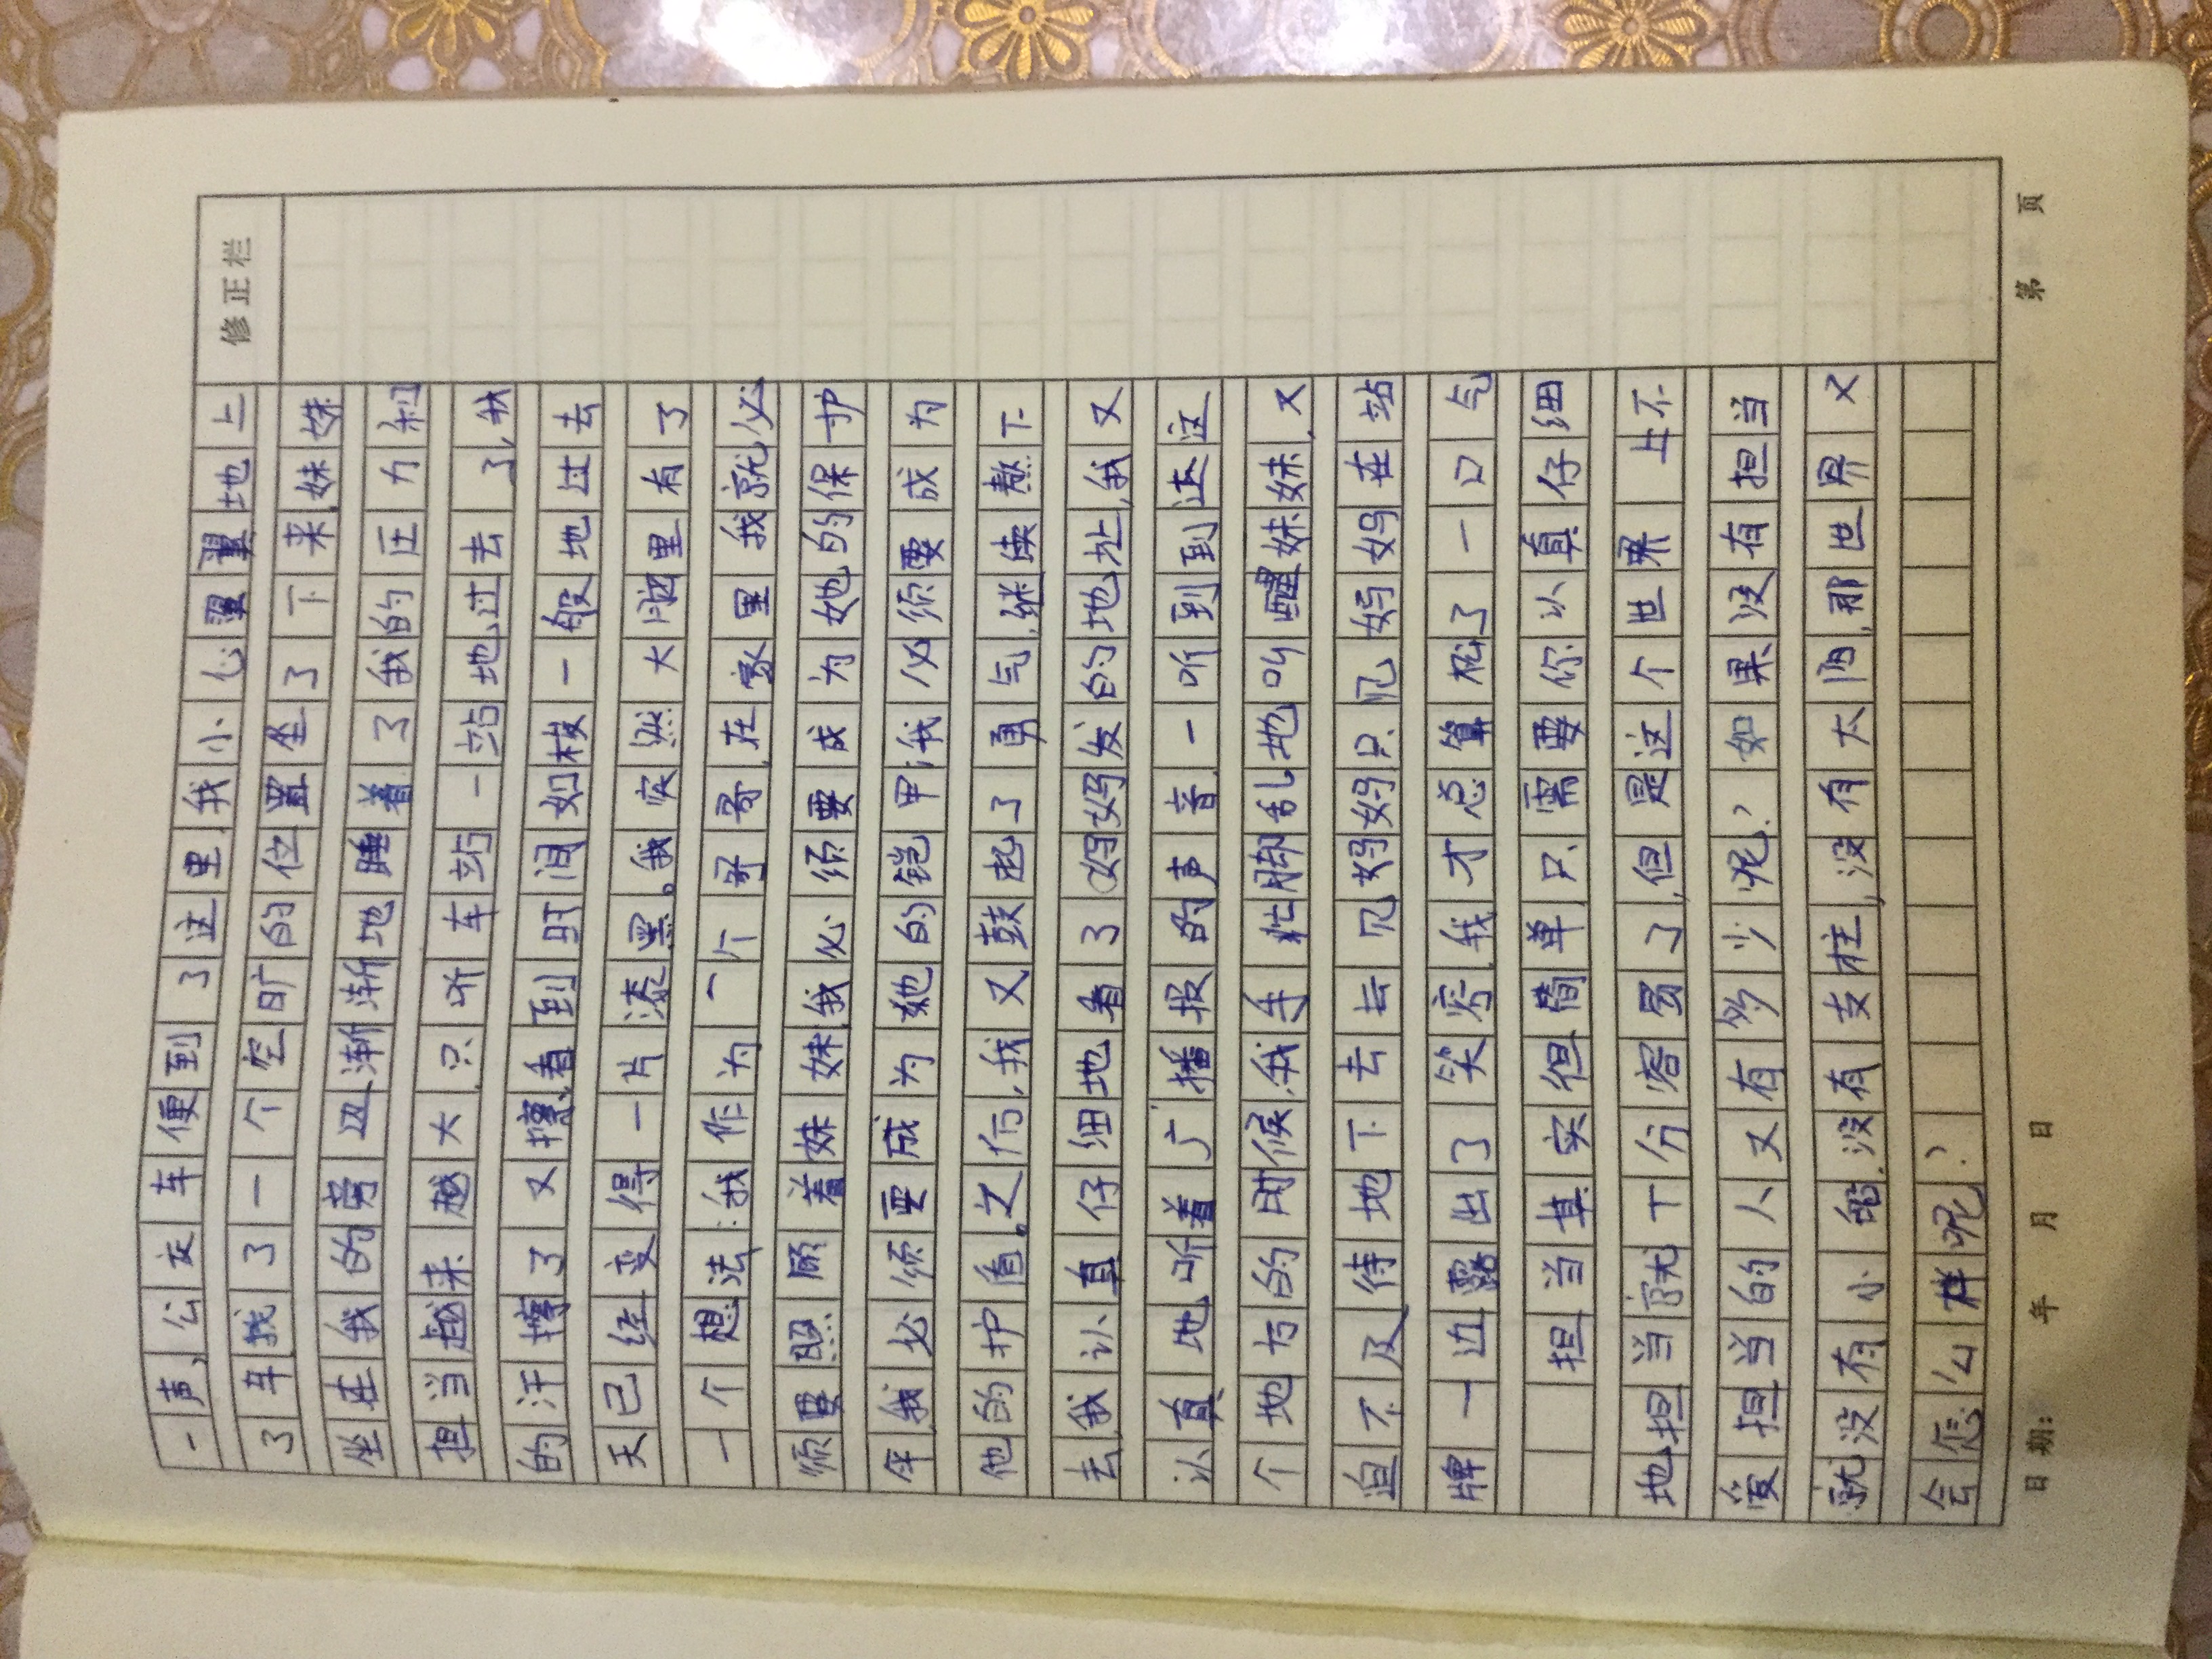 修正栏
一声,公交车便到了这里,我小心翼翼地上
了车找了一个空旷的位置坐了下来,妹妹
坐在我的旁边,渐渐地睡着了我的压力和
担当越来越大,只听车站一站地过去了,我
的汗擦了又擦,看到时间如梭一般地过去
天已经变得一片漆黑。我突然大脑里有了
一个想法:我作为一个哥哥,在家里我就必
须要照顾着妹妹,我必须要成为她的保护
伞我必须要成为她的铠甲,我必须要成为
他的护盾。之后,我又鼓起了勇气,继续熬下
去,我认真仔细地看了妈妈发的地址,我又
认真地听着广播报的声音,一听到到达这
个地方的时候,我手忙脚乱地叫醒妹妹,又
迫不及待地下去去见妈妈,只见妈妈在站
牌一边露出了笑容,我才总算松了一口气
担当其实但简单,只需要你认真仔细
地担当就十分容易了,但是这个世界上不
爱担当的人又有多少呢?如果没有担当
就没有小船,没有支柱,没有太阳,那世界又
会怎么样呢?
日期: 年 月 日
第 页